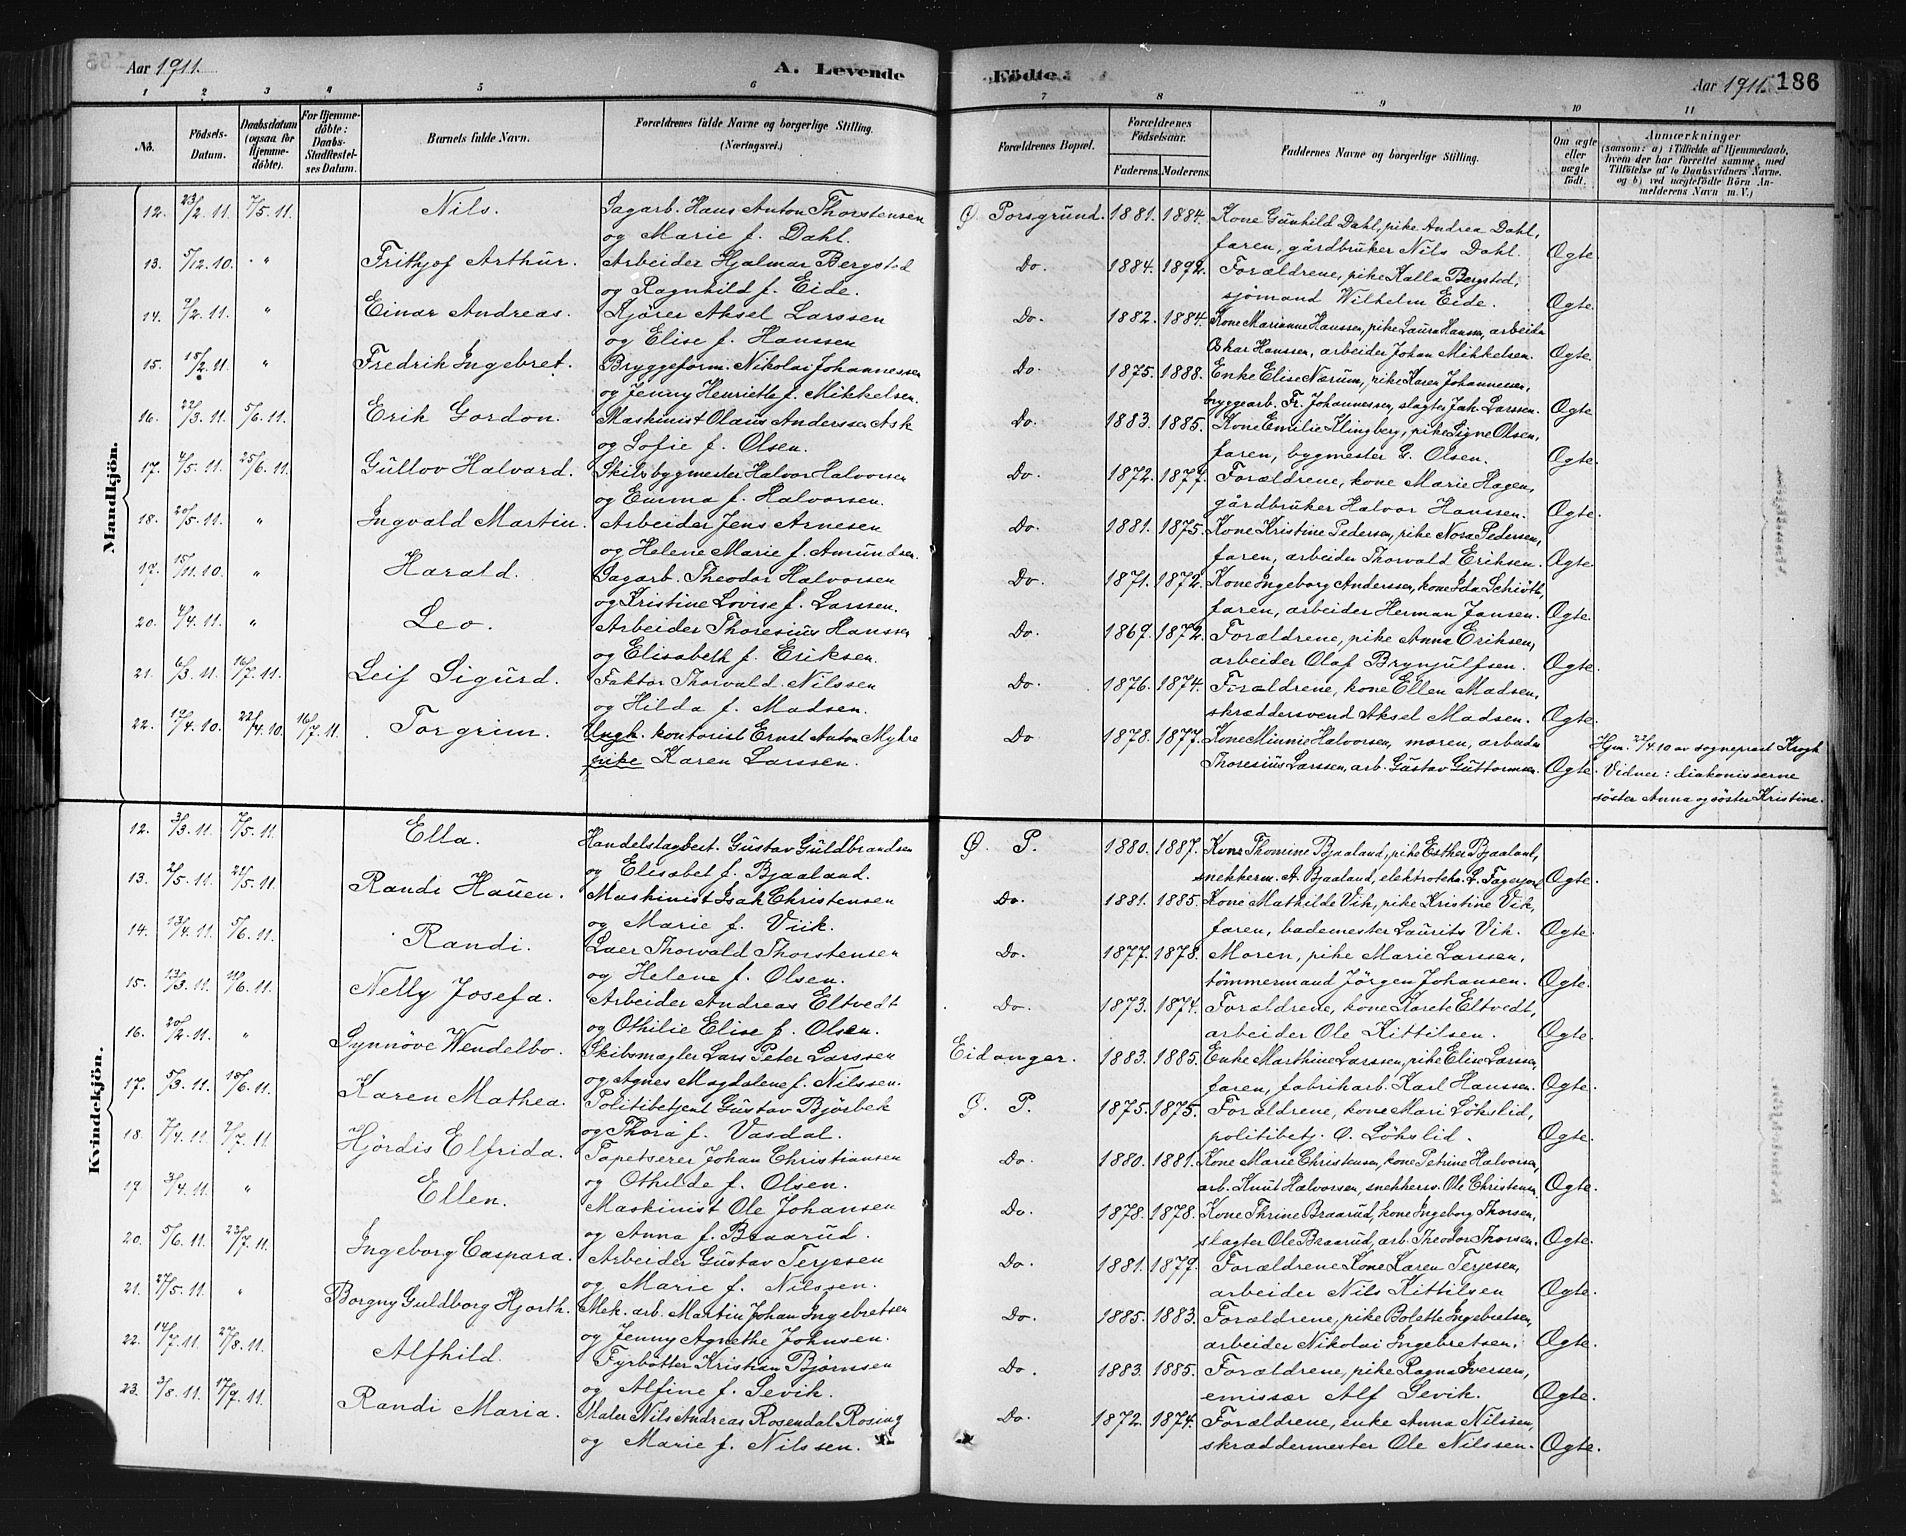 Aar 1911.
A. Levende
Födte.
Aar 1911.
186
1 2 3 4 5 6 7 8 9 10 11
No.
Födsels-Datum.
Daabsdatum (ogsaa for Hjemmedöbte).
For Hjemmedöbte: Daabs-Stadfæstelses Datum.
Barnets fulde Navn.
Forældrenes fulde Navne og borgerlige Stilling. (Næringsvei.)
Forældrenes Bopæl.
Forældrenes Födselsaar.
Faderens. Moderens.
Faddernes Navne og borgerlige Stilling.
Om ægte eller uægte födt.
Anmærkninger
(saasom: a) i Tilfælde af Hjemmedaab, hvem der har forrettet samme, med Tilföielse af to Daabsvidners Navne, og b) ved uægtefödte Börn Anmelderens Navn m. V.)
Mandkjön.
12. 23/2.11. 7/5.11. Nils. Sagarb. Hans Anton Thorstensen Ø. Porsgrund. 1881. 1884. Kone Gunhild Dahl, pike Andrea Dahl,
og Marie f. Dahl. faren, gårdbruker Nils Dahl. Ægte.
13. 5/12.10. " Frithjof Arthur. Arbeider Hjalmar Bergstad Do. 1884. 1892. Forældrene, pike Kalla Bergstad,
og Ragnhild f. Eide. sjömand Wilhelm Eide. Ægte.
14. 9/2.11. " Einar Andreas. Kjörer Aksel Larssen Do. 1882. 1884. Kone Marianne Hanssen, pike Laura Hansen, arbeider
og Elise f. Hanssen Oskar Hanssen, arbeider Johan Mikkelsen. Ægte.
15. 15/2.11. " Fredrik Ingebret. Bryggeform. Nikolai Johannessen Do. 1875. 1888. Enke Elise Nærum, pike Karen Johannessen,
og Jenny Henriette f. Mikkelsen. bryggearb. Fr. Johannessen, slagter Joh. Larssen. Ægte.
16. 22/3.11. 5/6.11. Erik Gordon. Maskinist Olaus Anderssen Ask Do. 1883. 1885. Kone Emilie Klingberg, pike Signe Olsen,
og Sofie f. Olsen. faren, bygmester G. Olsen. Ægte.
17. 4/5.11. 25/6.11. Gullov Halvard. Skibsbygmester Halvor Halvorsen Do. 1872. 1877. Forældrene, kone Marie Hagen,
og Emma f. Halvorsen. gårdbruker Halvor Hanssen. Ægte.
18. 20/5.11. " Ingvald Martin. Arbeider Jens Arnesen Do. 1881. 1875. Kone Kristine Pedersen, pike Nora Pedersen,
og Helene Marie f. Amundsen. faren, arbeider Thorvald Eriksen. Ægte.
19. 15/11.10. " Harald. Sagarb. Theodor Halvorsen Do. 1871. 1872. Kone Ingeborg Anderssen, kone Ida Schiöth,
og Kristine Lovise f. Larssen. faren, arbeider Herman Jansen. Ægte.
20. 4/4.11. " Leo. Arbeider Thoresius Hanssen Do. 1869. 1872. Forældrene, pike Anna Eriksen,
og Elisabeth f. Eriksen. arbeider Olaf Brynjulfsen. Ægte.
21. 6/3.11. 16/7.11. Leif Sigurd. Faktor Thorvald Nilssen Do. 1876. 1874. Forældrene, kone Ellen Madsen,
og Hilda f. Madsen. skræddersvend Aksel Madsen. Ægte.
22. 17/4.10. 22/4.10. 16/7.11. Torgrim. Ungk. kontorist Ernst Anton Myhre Do 1878. 1877. Kone Minnie Halvorsen, moren, arbeider
pike Karen Larssen. Thoresius Larssen, arb. Gustav Guttormsen. Ægte.
Hjm. 22/4.10 av sogneprest Krogh
Vidner: diakonisserne
söster Anna og söster Kristine.
Kvindekjön.
12. 3/3.11. 7/5.11. Ella. Handelsfagbest. Gustav Guldbrandsen Ø. P. 1880. 1887. Kone Thomine Bjaaland, pike Esther Bjaaland,
og Elisabet f. Bjaaland. snekkerm. A. Bjaaland, elektrotekn. L. Ægte.
13. 2/5.11. 21/5.11. Randi Hauen. Maskinist Isak Christensen Do. 1881. 1885. Kone Mathilde Vik, pike Kristine Vik,
og Marie f. Viik. faren, bademester Laurits Vik. Ægte.
14. 13/4.11. 5/6.11. Randi. Laer Thorvald Thorstensen Do. 1877. 1878. Moren, pike Marie Larssen,
og Helene f. Olsen. tömmermand Jörgen Johansen. Ægte.
15. 13/3.11. 11/6.11. Nelly Josefa. Arbeider Andreas Eltvedt Do. 1873. 1874. Forældrene, kone Karete Eltvedt,
og Othilie Elise f. Olsen. arbeider Ole Kittilsen. Ægte.
16. 20/2.11. " Synnöve Wendelbo. Skibsmægler Lars Peter Larssen Eidanger. 1883. 1885. Enke Marthine Larssen, pike Elise Larssen
og Agnes Magdalene f. Nilssen. faren, fabrikarb. Karl Hanssen. Ægte.
17. 5/3.11. 18/6.11. Karen Mathea. Politibetjent Gustav Bjösbek Ø. P. 1875. 1875. Forældrene, kone Mari Lökslid,
og Thora f. Vasdal. politibetj. O. Lökslid. Ægte.
18. 7/4.11. 2/7.11. Hjördis Elfrida. Tapetserer Johan Christiansen Do. 1880. 1881. Kone Marie Christensen, kone Petrine Halvorsen,
og Othilde f. Olsen. arb. Knut Halvorsen, snekkersv. Ole Christensen. Ægte.
19. 3/4.11. " Ellen. Maskinist Ole Johansen Do. 1878. 1878. Kone Thrine Braarud, kone Ingeborg Thorsen,
og Anna f. Braarud. slagter Ole Braarud, arb. Theodor Thorsen. Ægte.
20. 5/6.11. 23/7.11. Ingeborg Caspara. Arbeider Gustav Terjesen Do. 1881. 1879. Forældrene Kone Karen Terjesen,
og Marie f. Nilssen. arbeider Nils Kittilsen Ægte.
21. 27/5.11. " Borgny Guldborg Hjorth. Mek. arb. Martin Johan Ingebretsen Do. 1885. 1883. Forældrene, pike Bolette Ingebretsen,
og Jenny Agnethe Johnsen. arbeider Nikolai Ingebretsen. Ægte.
22. 14/7.11. 27/8.11. Alfhild. Fyrböter Kristian Björnsen Do. 1883. 1885. Forældrene, pike Ragna Iversen,
og Alfine f. Sevik. emissær Alf Sevik. Ægte.
23. 3/8.11. 17/9.11. Randi Maria. Maler Nils Andreas Rosendal Rosing Do. 1872. 1874. Forældrene, enke Anna Nilssen,
og Marie f. Nilssen. skræddermester Ole Nilssen. Ægte.